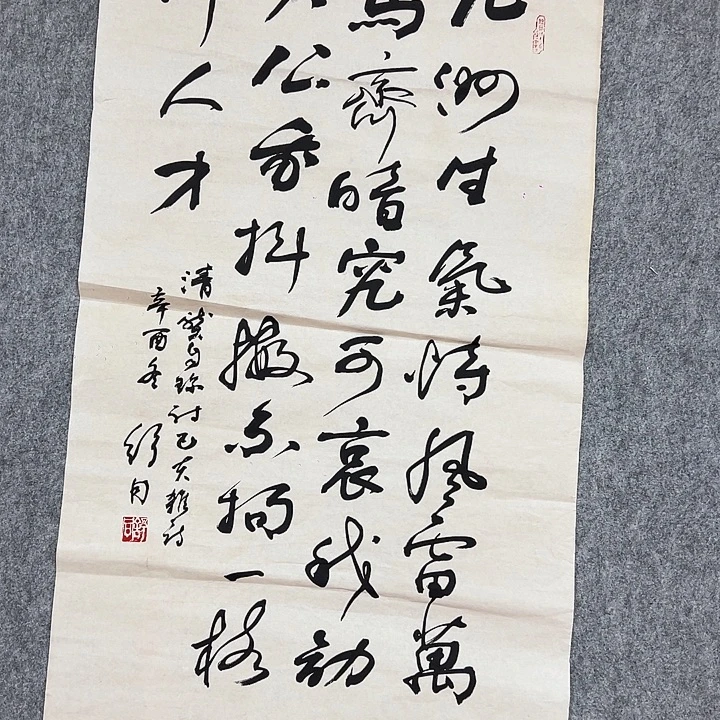 九州生氣恃風雷萬
馬齊暗究可哀我勸
天公重抖擻不拘一格
降人才
清龔自珍詩己亥雜詩
辛酉冬 舒同